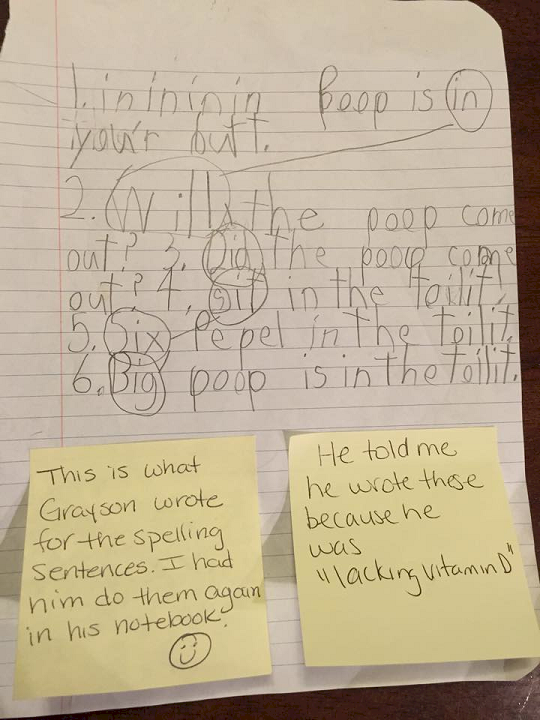 1. in in in in Poop is in
your butt.
2. Will the poop come
out? 3. Did the poop come
out? 4. sit in the toilit!
5. Six Pepel in the toilit.
6. Big poop is in the toilit.
This is what
Grayson wrote
for the spelling
sentences. I had
him do them again
in his notebook.
He told me
he wrote those
because he
was
"lacking vitamin D"